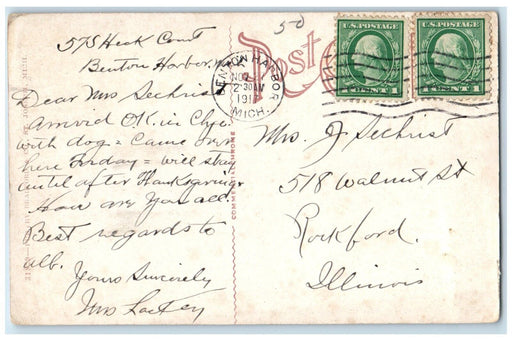 575 Heck Court
Benton Harbor, Mich
Dear Mrs Sechrist
Arrived O.K. in Chgo.
with dog = Came over
here Friday = will stay
until after Thanksgiving
How are you all.
Best regards to
all.
Yours Sincerely
Mrs
50
Post
BENTON HARBOR
NOV
2-30 AM
1917
MICH.
U.S. POSTAGE
1 CENT 1
U.S. POSTAGE
1 CENT 1
COMMERCIALCHROME
Mrs. J Sechrist
518 Walnut St
Rockford.
Illinois